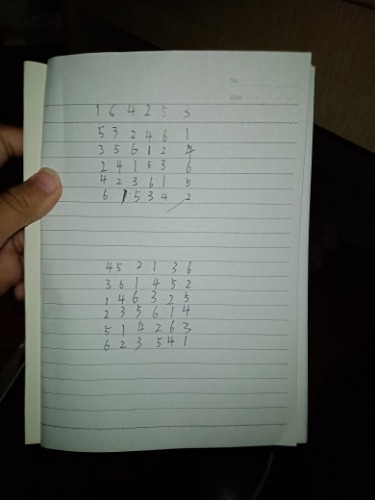 No
Date
1 6 4 2 5 3
5 3 2 4 6 1
3 5 6 1 2 4
2 4 1 5 3 6
4 2 3 6 1 5
6 1 5 3 4 2
4 5 2 1 3 6
3 6 1 4 5 2
1 4 6 3 2 5
2 3 5 6 1 4
5 1 4 2 6 3
6 2 3 5 4 1